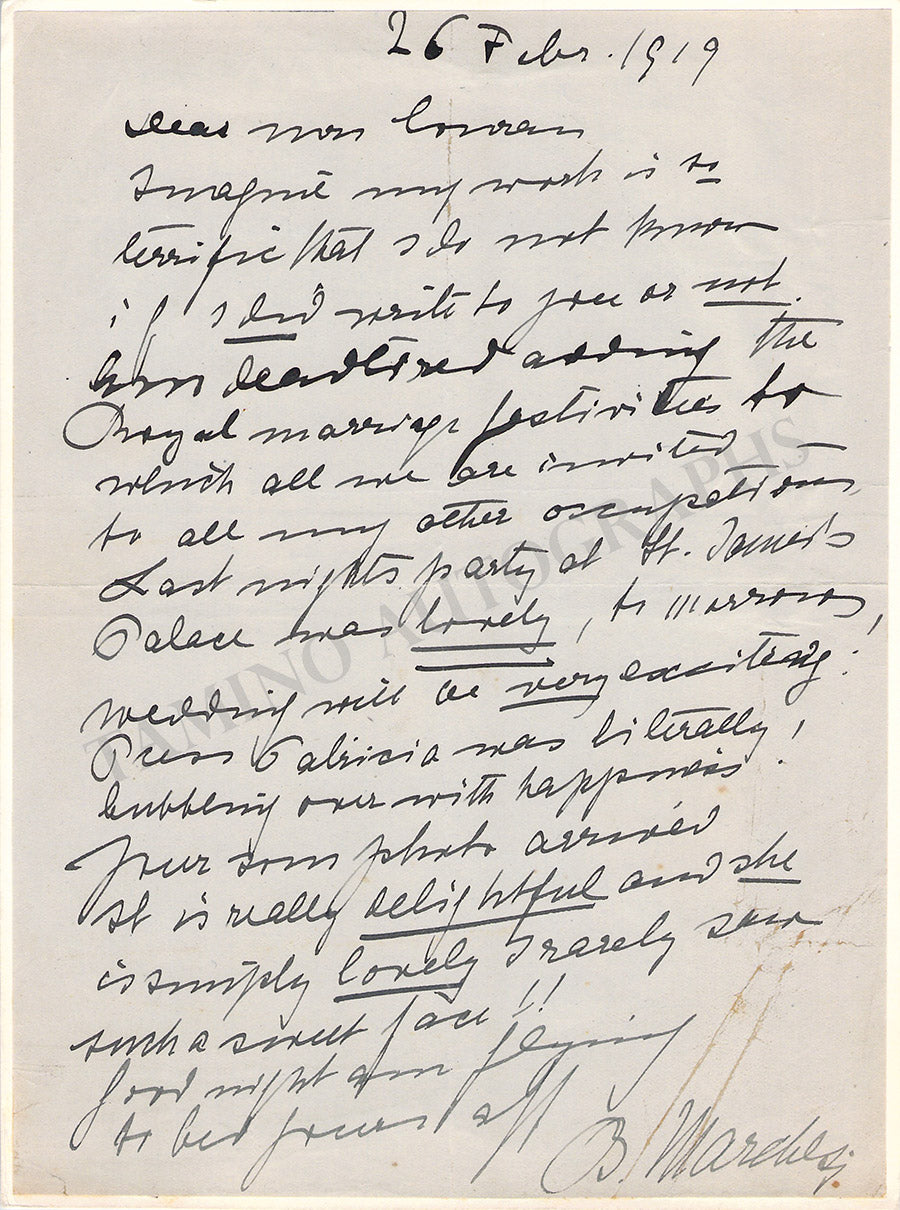 26 Febr. 1919
Dear
Imagine my work is so
terrific that I do not know
if I did write to you or not.
Am deadtired adding the
Royal marriage festivities to
which all we are invited
to all my other occupations
Last nights party at St. James's
Palace was lovely, to morrows
wedding will be very exciting!
Patricia was literally
bubbling over with happiness!
Your photo arrived
It is really delightful and she
is simply lovely I rarely saw
such a sweet face!!
Good night am flying
to bed yours aff
B. Marchesi
TAMINO AUTOGRAPHS